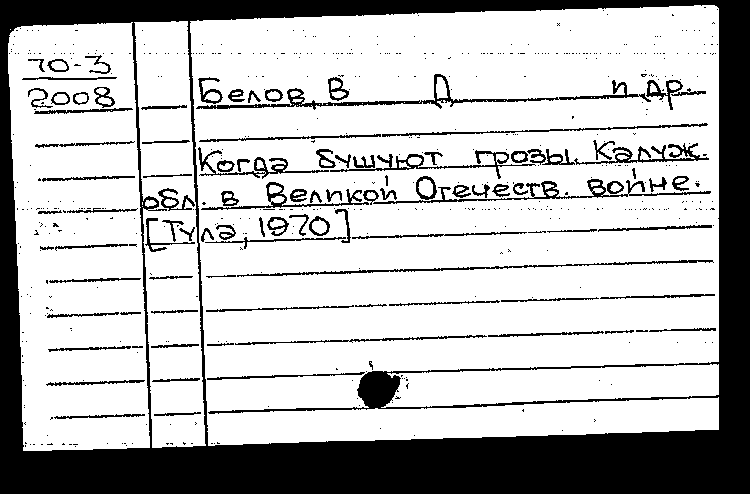 70-3
2008
Белов, В Д и др.
Когда бушуют грозы. Калуж.
обл. в Великой Отечеств. войне.
[Тула, 1970]